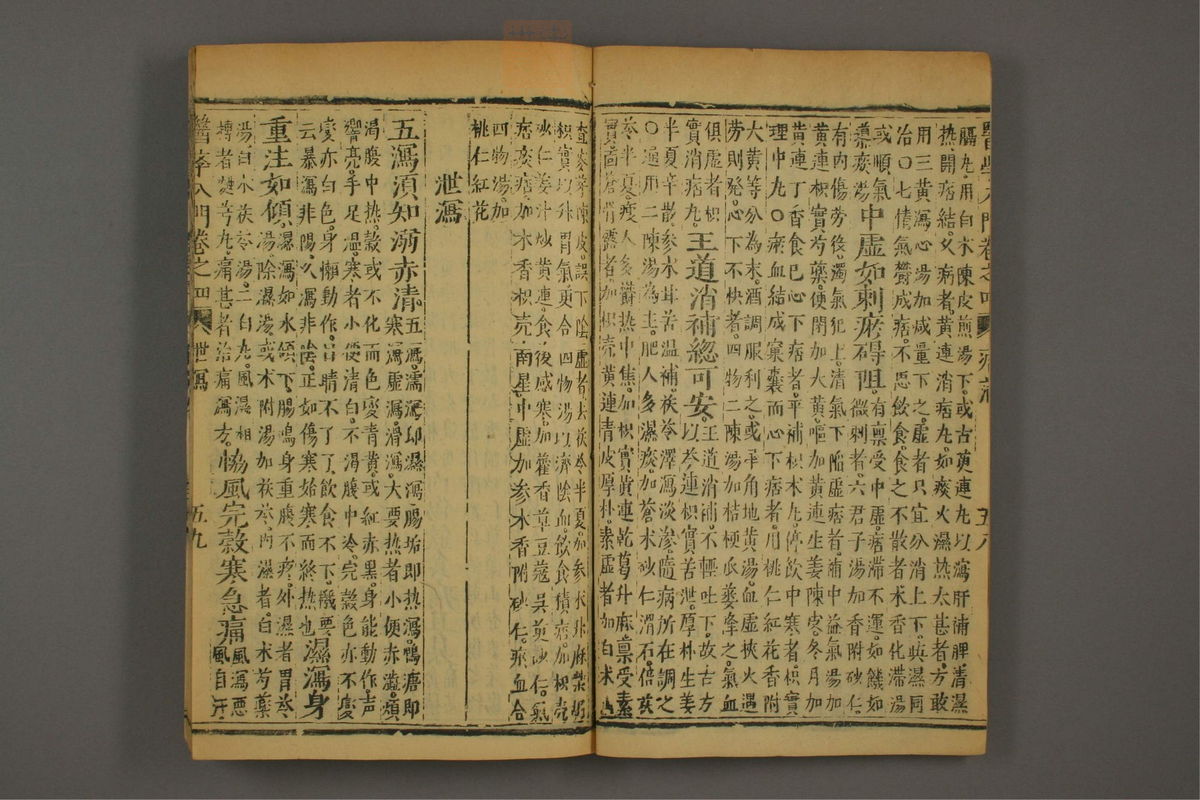 醫學入門卷之四 痞滿 五八
膈丸用白朮陳皮煎湯下或古萸連丸以瀉肝補脾淸濕
熱開痞結久病者黃連消痞丸如痰火濕熱太甚者方敢
用三黃瀉心湯加減量下之虛者只宜分消上下與濕同
治〇七情氣鬱成痞不思飮食食之不散者木香化滯湯
或順氣導痰湯中虛如刺瘀碍阻微刺者六君子湯加香附砂仁有稟受中虛痞滯不運如饑如
有內傷勞後濁氣犯上淸氣下陷虛痞者補中益氣湯加
黃連枳實芍藥便閉加大黃嘔加黃連生姜陳皮冬月加
黃連丁香食已心下痞者平補枳朮丸停飮中寒者枳實
理中丸〇瘀血結成窠囊而心下痞者用桃仁紅花香附
大黃等分爲末酒調服利之或犀角地黃湯血虛挾火遇
勞則發心下不快者四物二陳湯加桔梗瓜蔞降之氣血
俱虛者枳實消痞丸王道消補總可安王道消補不輕吐下故古方以參連枳實苦泄厚朴生姜
半夏辛散參朮苦溫補茯苓澤瀉淡滲隨病所在調之
〇通用二陳湯爲主肥人多濕痰加蒼朮砂仁滑石倍茯
苓半夏瘦人多鬱熱中焦加枳實黃連乾葛升麻稟受素
實面蒼骨露者加枳壳黃連靑皮厚朴素虛者加白朮山
查麥芽陳皮誤下陰虛者去茯苓半夏加參朮升麻柴胡
枳實以升胃氣更合四物湯以濟陰血飮食積痞加枳壳
砂仁姜汁炒黃連食後感寒加藿香草豆蔻吳萸砂仁氣
痞痰痞加木香枳壳南星中虛加參朮香附砂仁瘀血合
四物湯加桃仁紅花
泄瀉
五瀉須知溺赤淸五瀉濡瀉卽濕瀉腸垢卽熱瀉鴨溏卽寒瀉虛瀉滑瀉大要熱者小便赤澁煩
渴腹中熱穀或不化而色變靑黃或紅赤黑身能動作聲
響亮手足溫寒者小便淸白不渴腹中冷完穀色亦不變
變亦白色身懶動作目睛不了了飮食不下幾要
云暴瀉非陽久瀉非陰正如傷寒始寒而終熱也濕瀉身
重注如傾濕瀉如水傾下腸鳴身重腹不疼外濕者胃苓湯除濕湯或朮附湯加茯苓內濕者白朮芍藥
湯白朮茯苓湯二白丸風濕相
搏者夔等丸痛甚者治痛瀉方恊風完穀寒急痛風瀉惡風自汗
醫學入門卷之四 泄瀉 五九